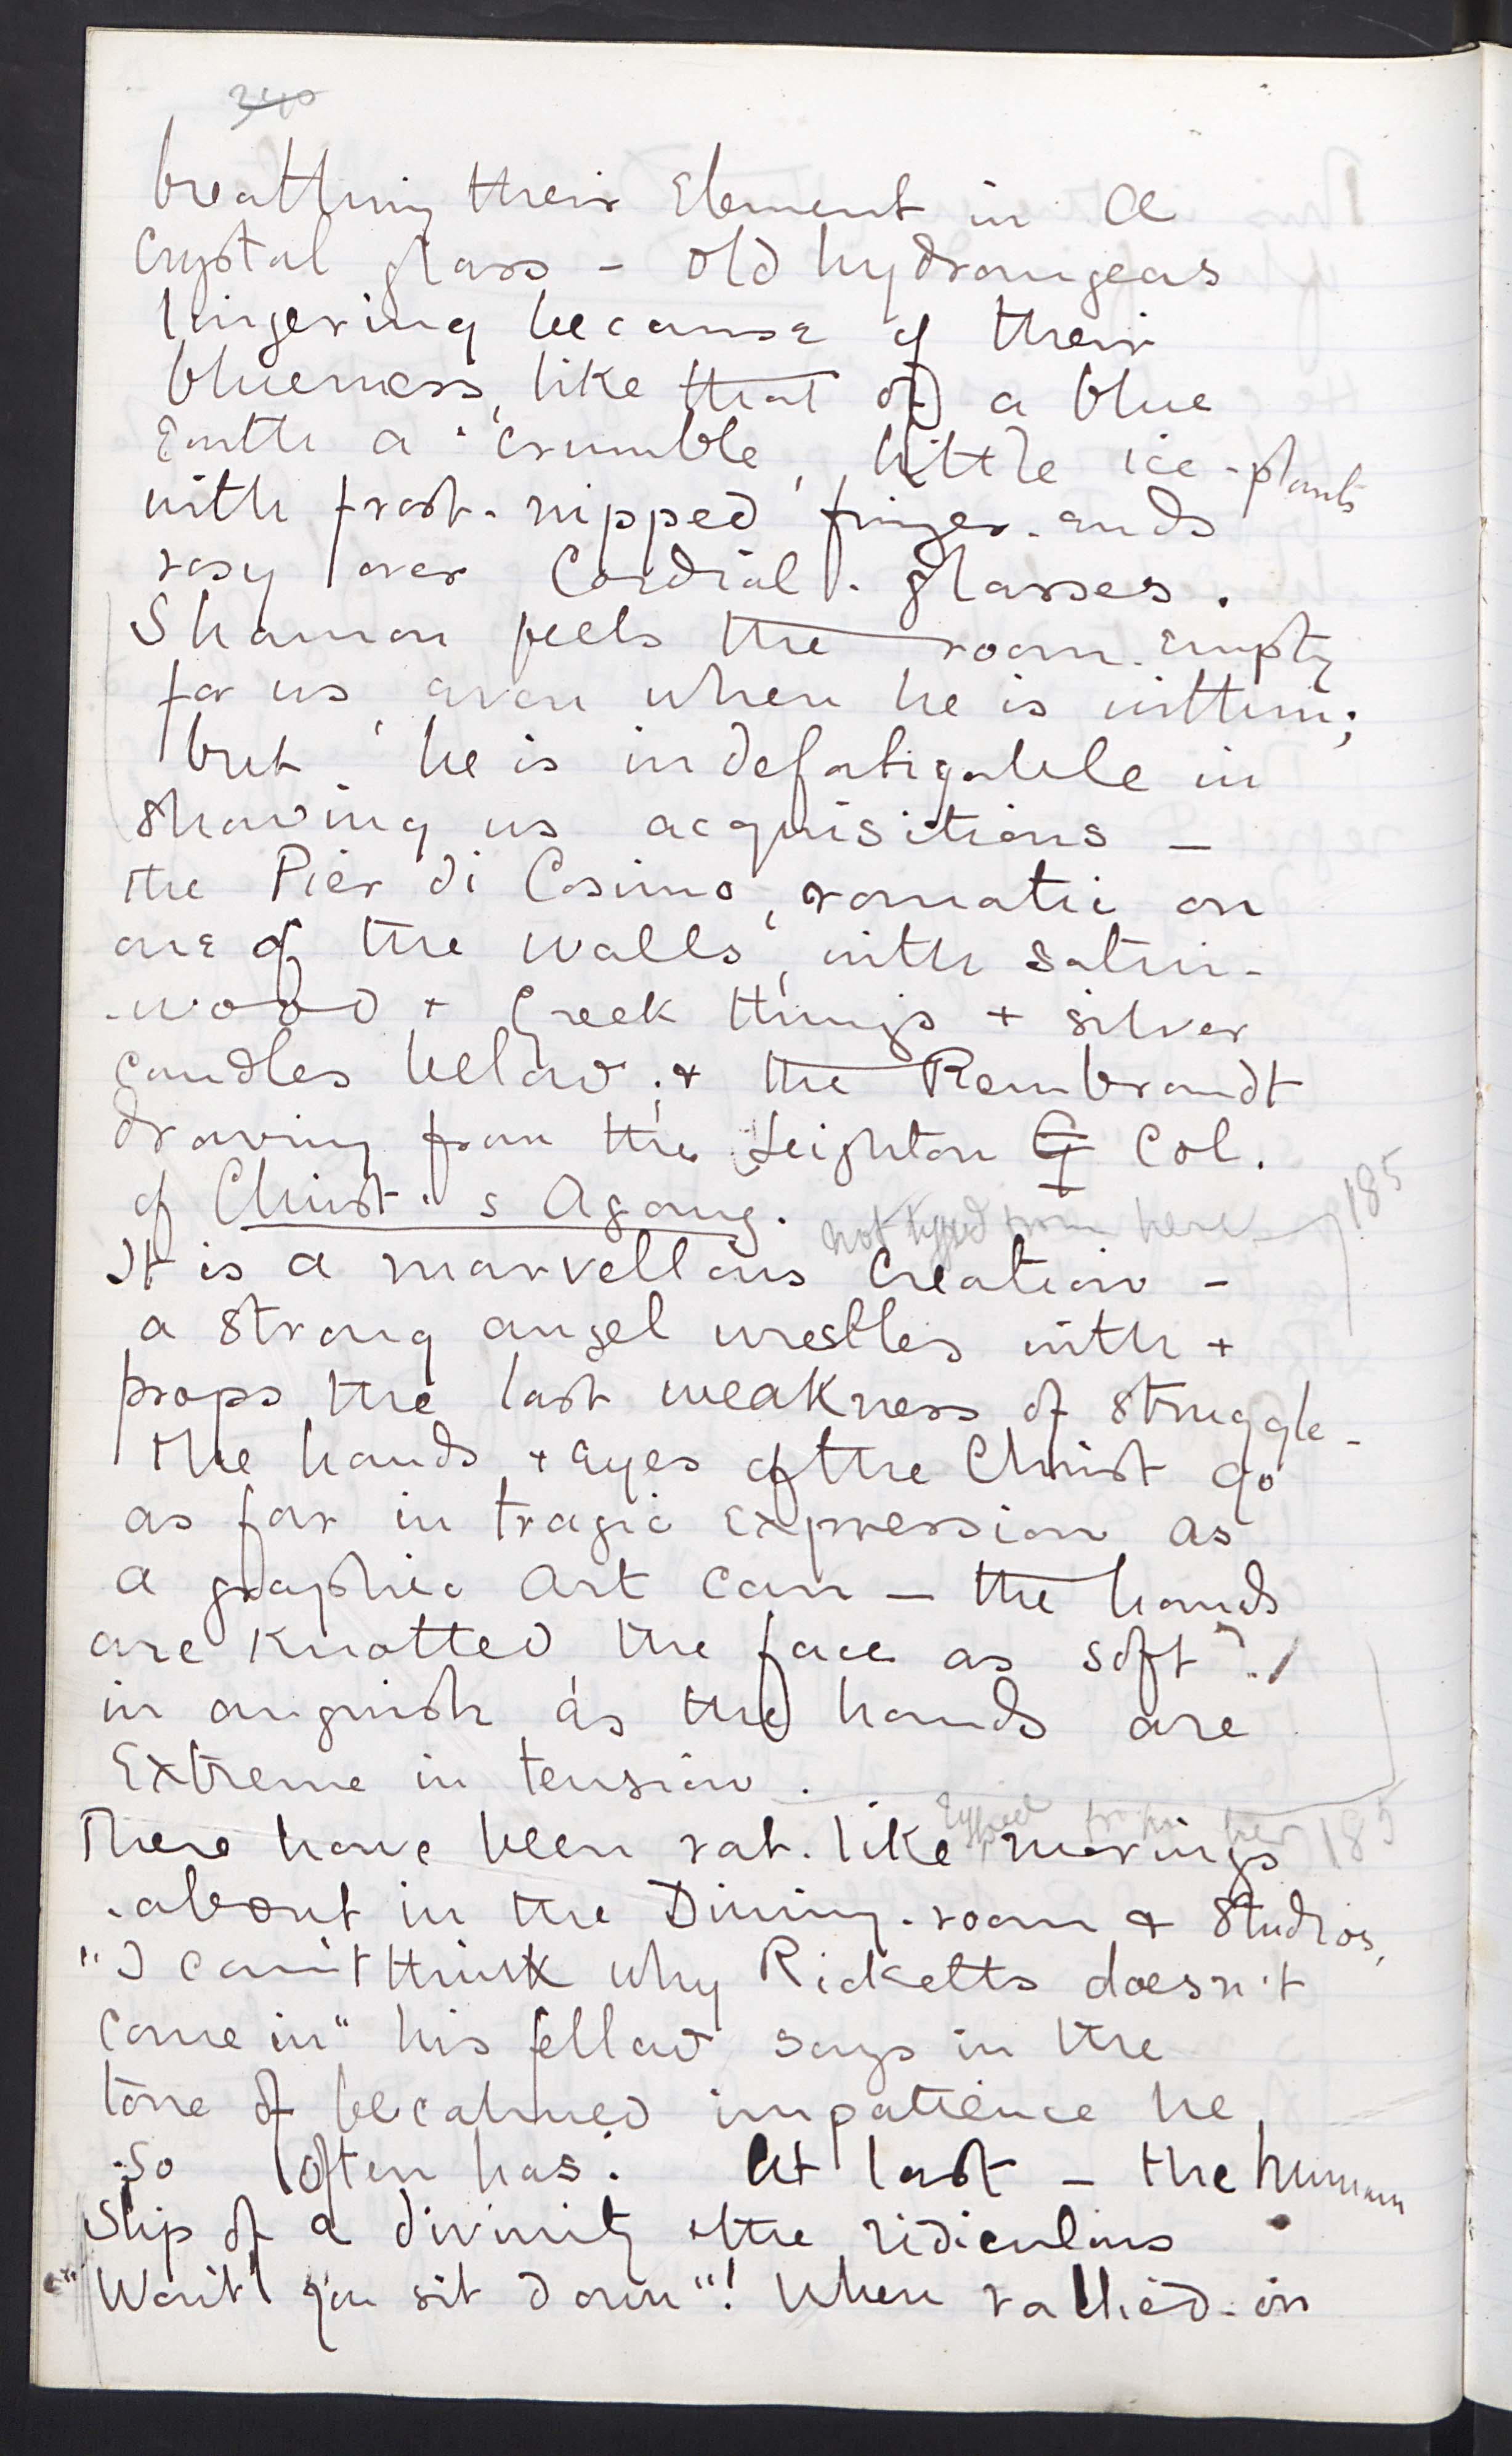 240
breathing their Element in a
Crystal glass - old hydrangeas
lingering because of their
blueness, like that of a blue
Earth a-crumble, little ice-plants
with frost-nipped finger-ends
rosy over Cordial-glasses.
Shannon feels the room empty
for us, even when he is within;
but he is indefatigable in
showing us acquisitions -
the Pier di Cosimo, romatic on
one of the walls, with satin-
-wood + Greek things + silver
candles below; + the Rembrandt
drawing from the Leighton G Col.
of Christ's Agony. not typed from here 185
It is a marvellous Creation -
a strong angel wrestles with +
props the last weakness of struggle -
the hands + eyes of the Christ go
as far in tragic expression as
a graphic art can - the hands
are knotted, the face as soft
in anguish as the hands are
Extreme in tension.
typed from here 185
There have been rat-like movings
-about in the Dining-room + Studios,
"I can't think why Ricketts doesn't
come in" his fellow says in the
tone of becalmed impatience he
so often has. At last - the human
slip of a divinity + the ridiculous
"Won't you sit down"! When rallied on